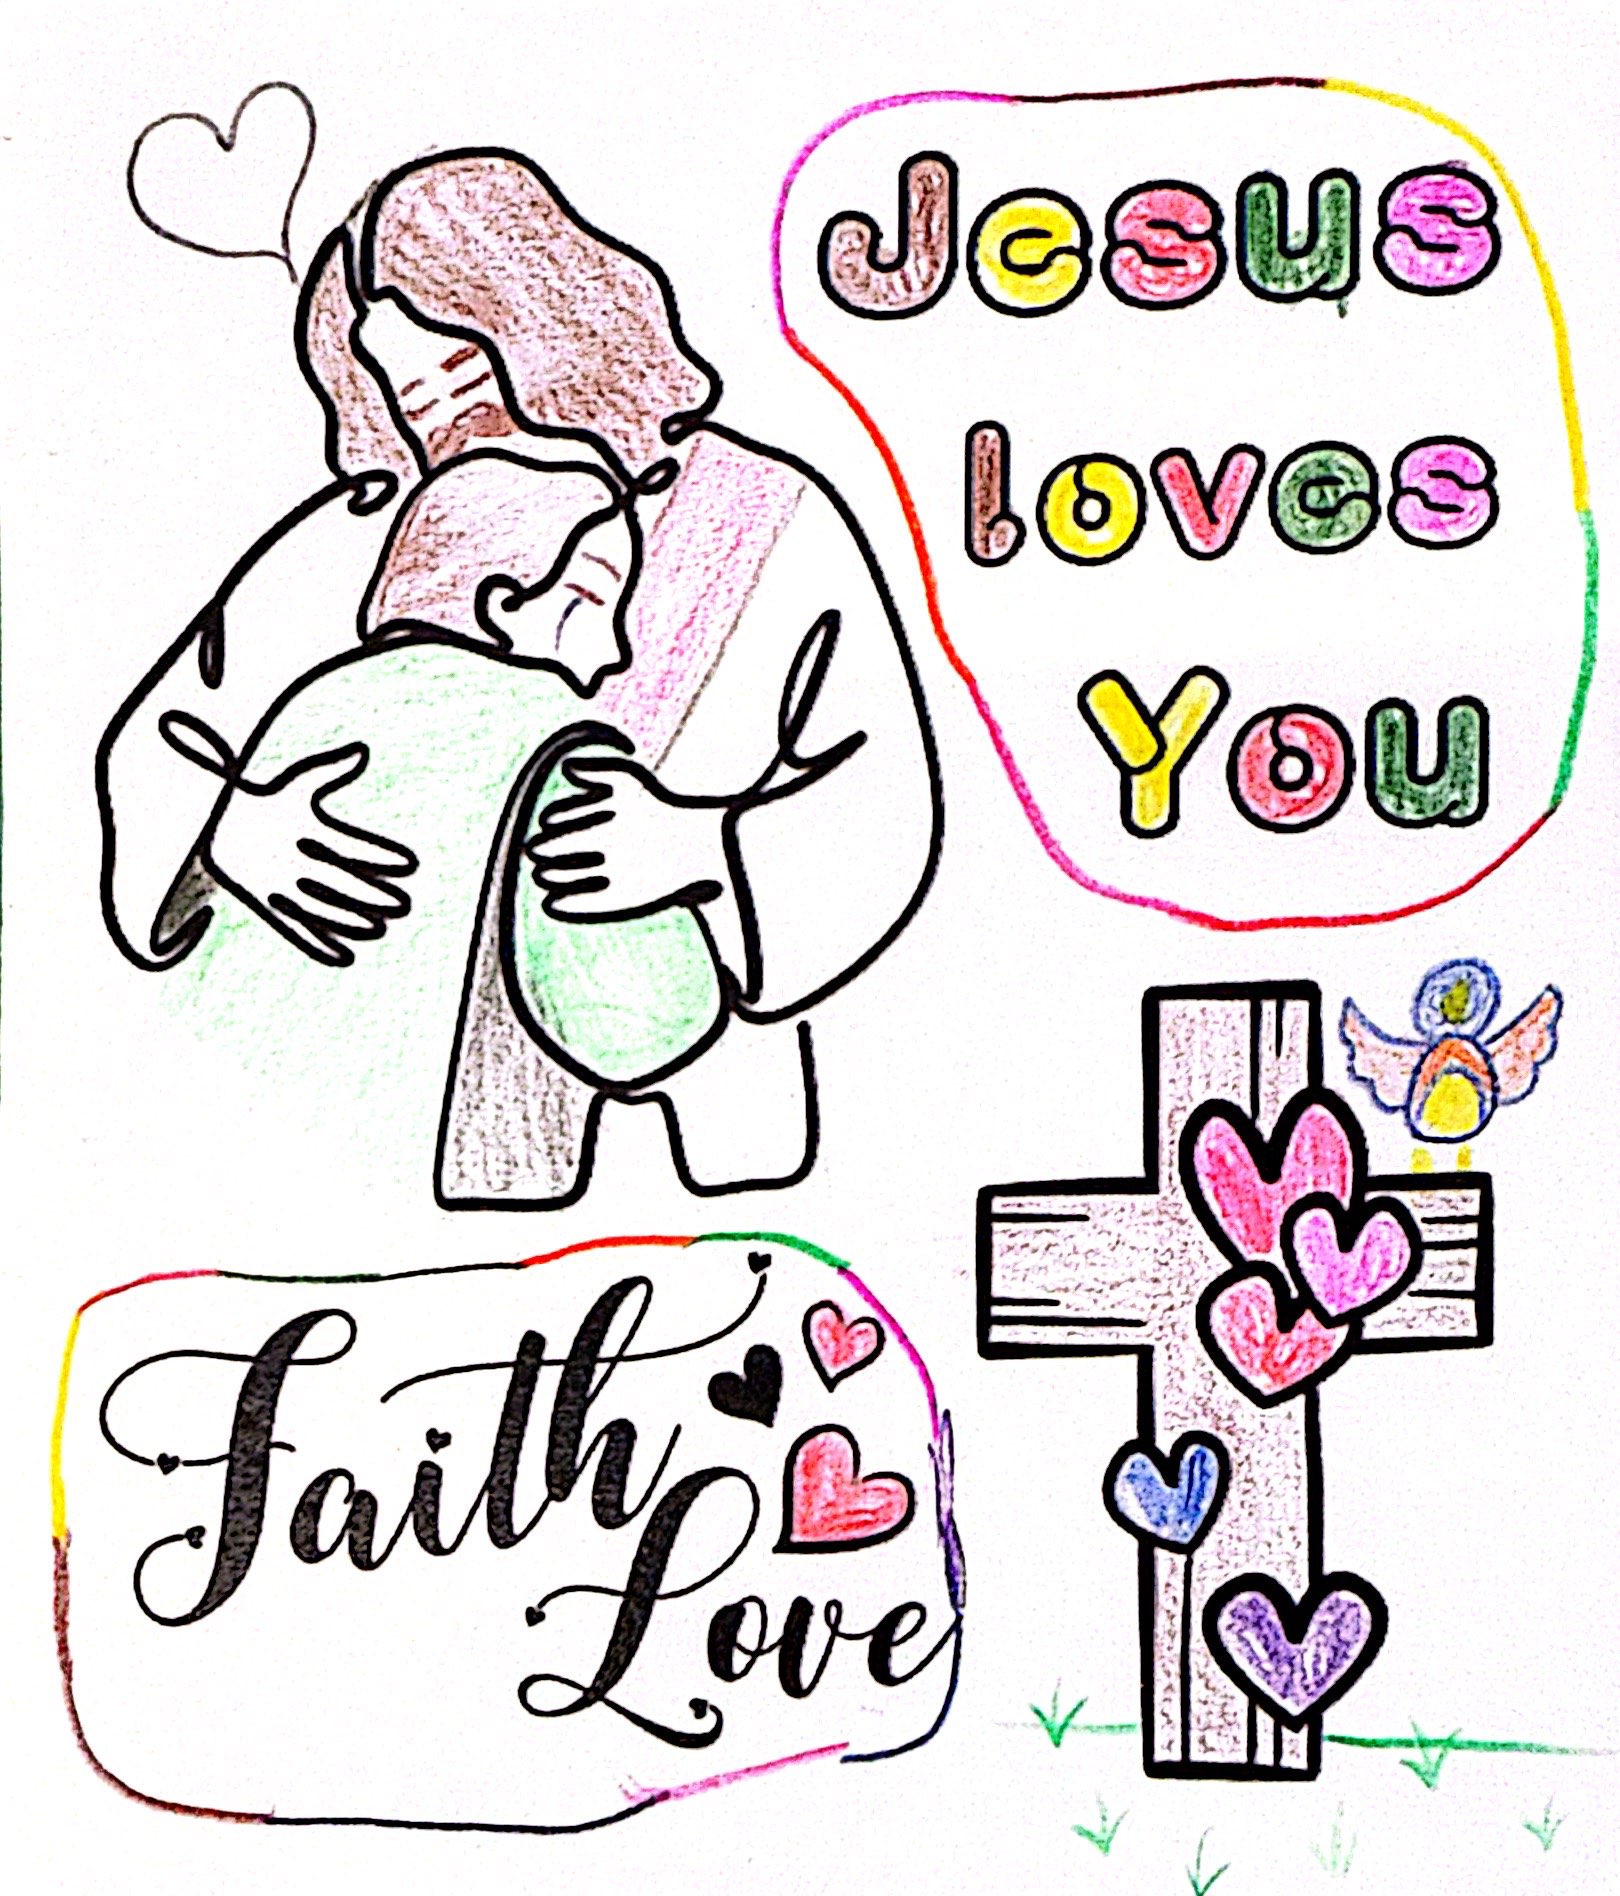 Jesus
loves
You
Faith
Love